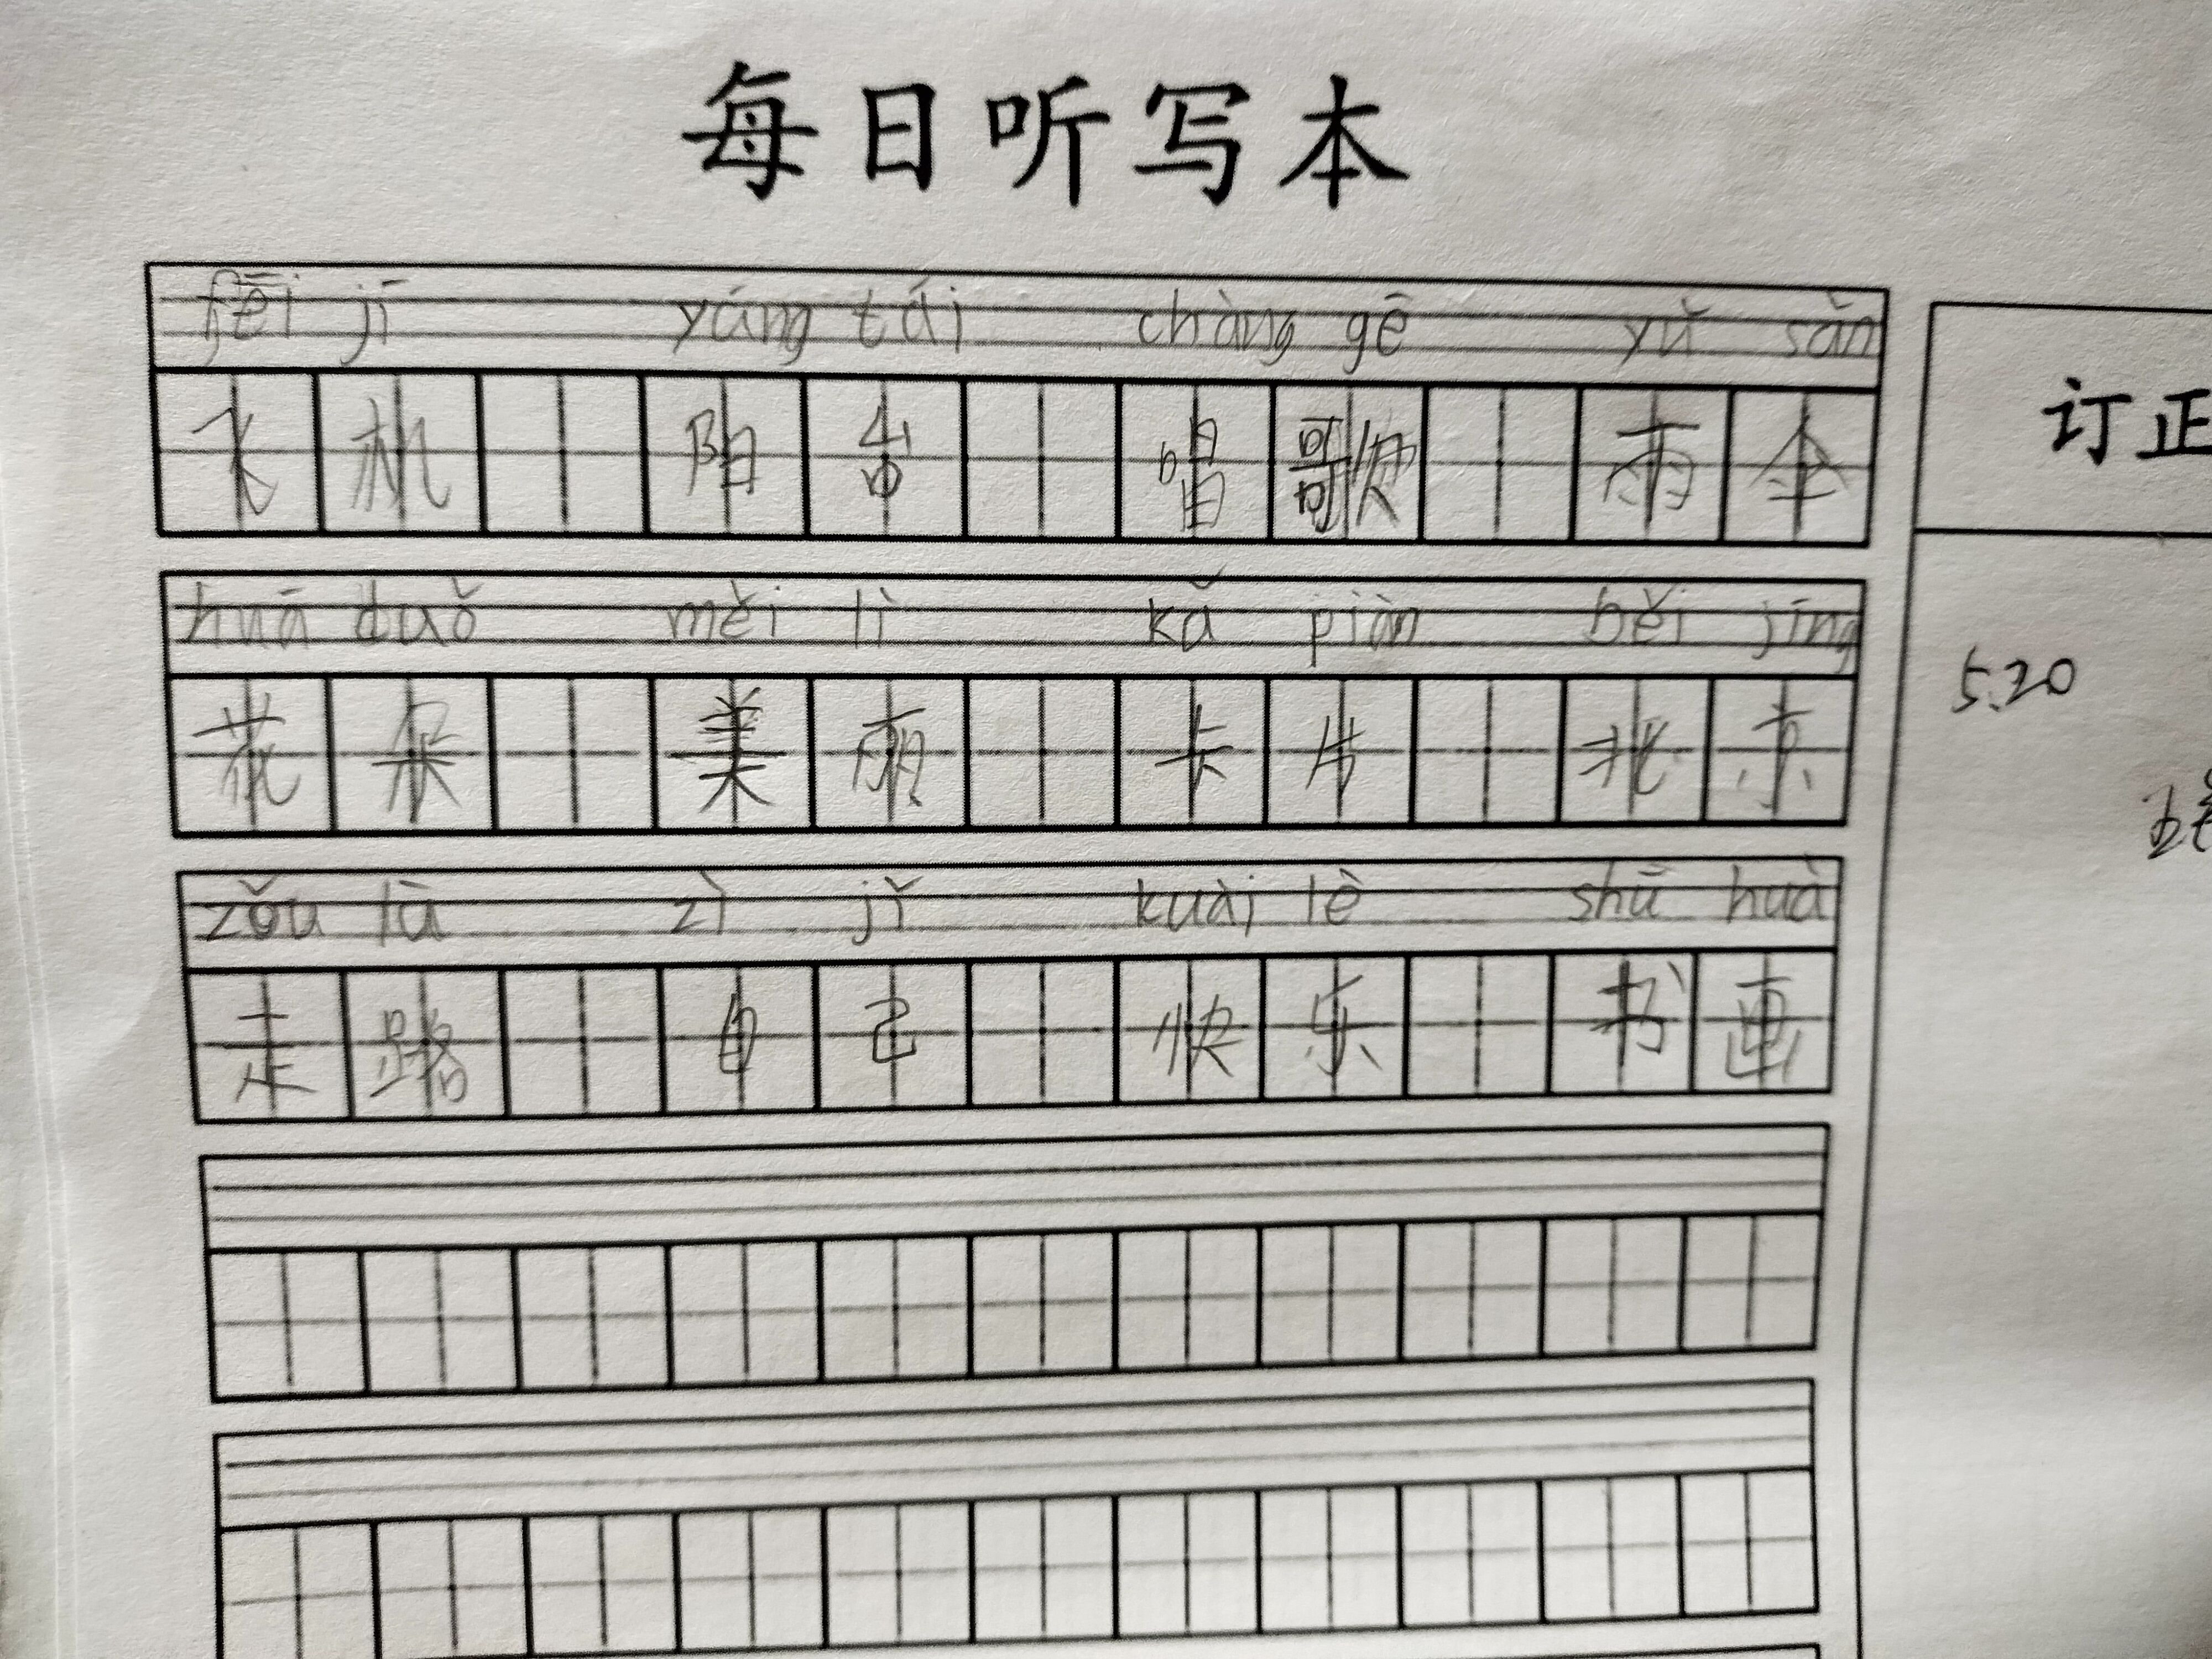 每日听写本
fēi jī yáng tái chàng gē yǔ sǎn
飞机 阳台 唱歌 雨伞
订正
huā duǒ měi lì kǎ piàn běi jīng
花朵 美丽 卡片 北京
5.20
zǒu lù zì jǐ kuài lè shū huà
走路 自己 快乐 书画